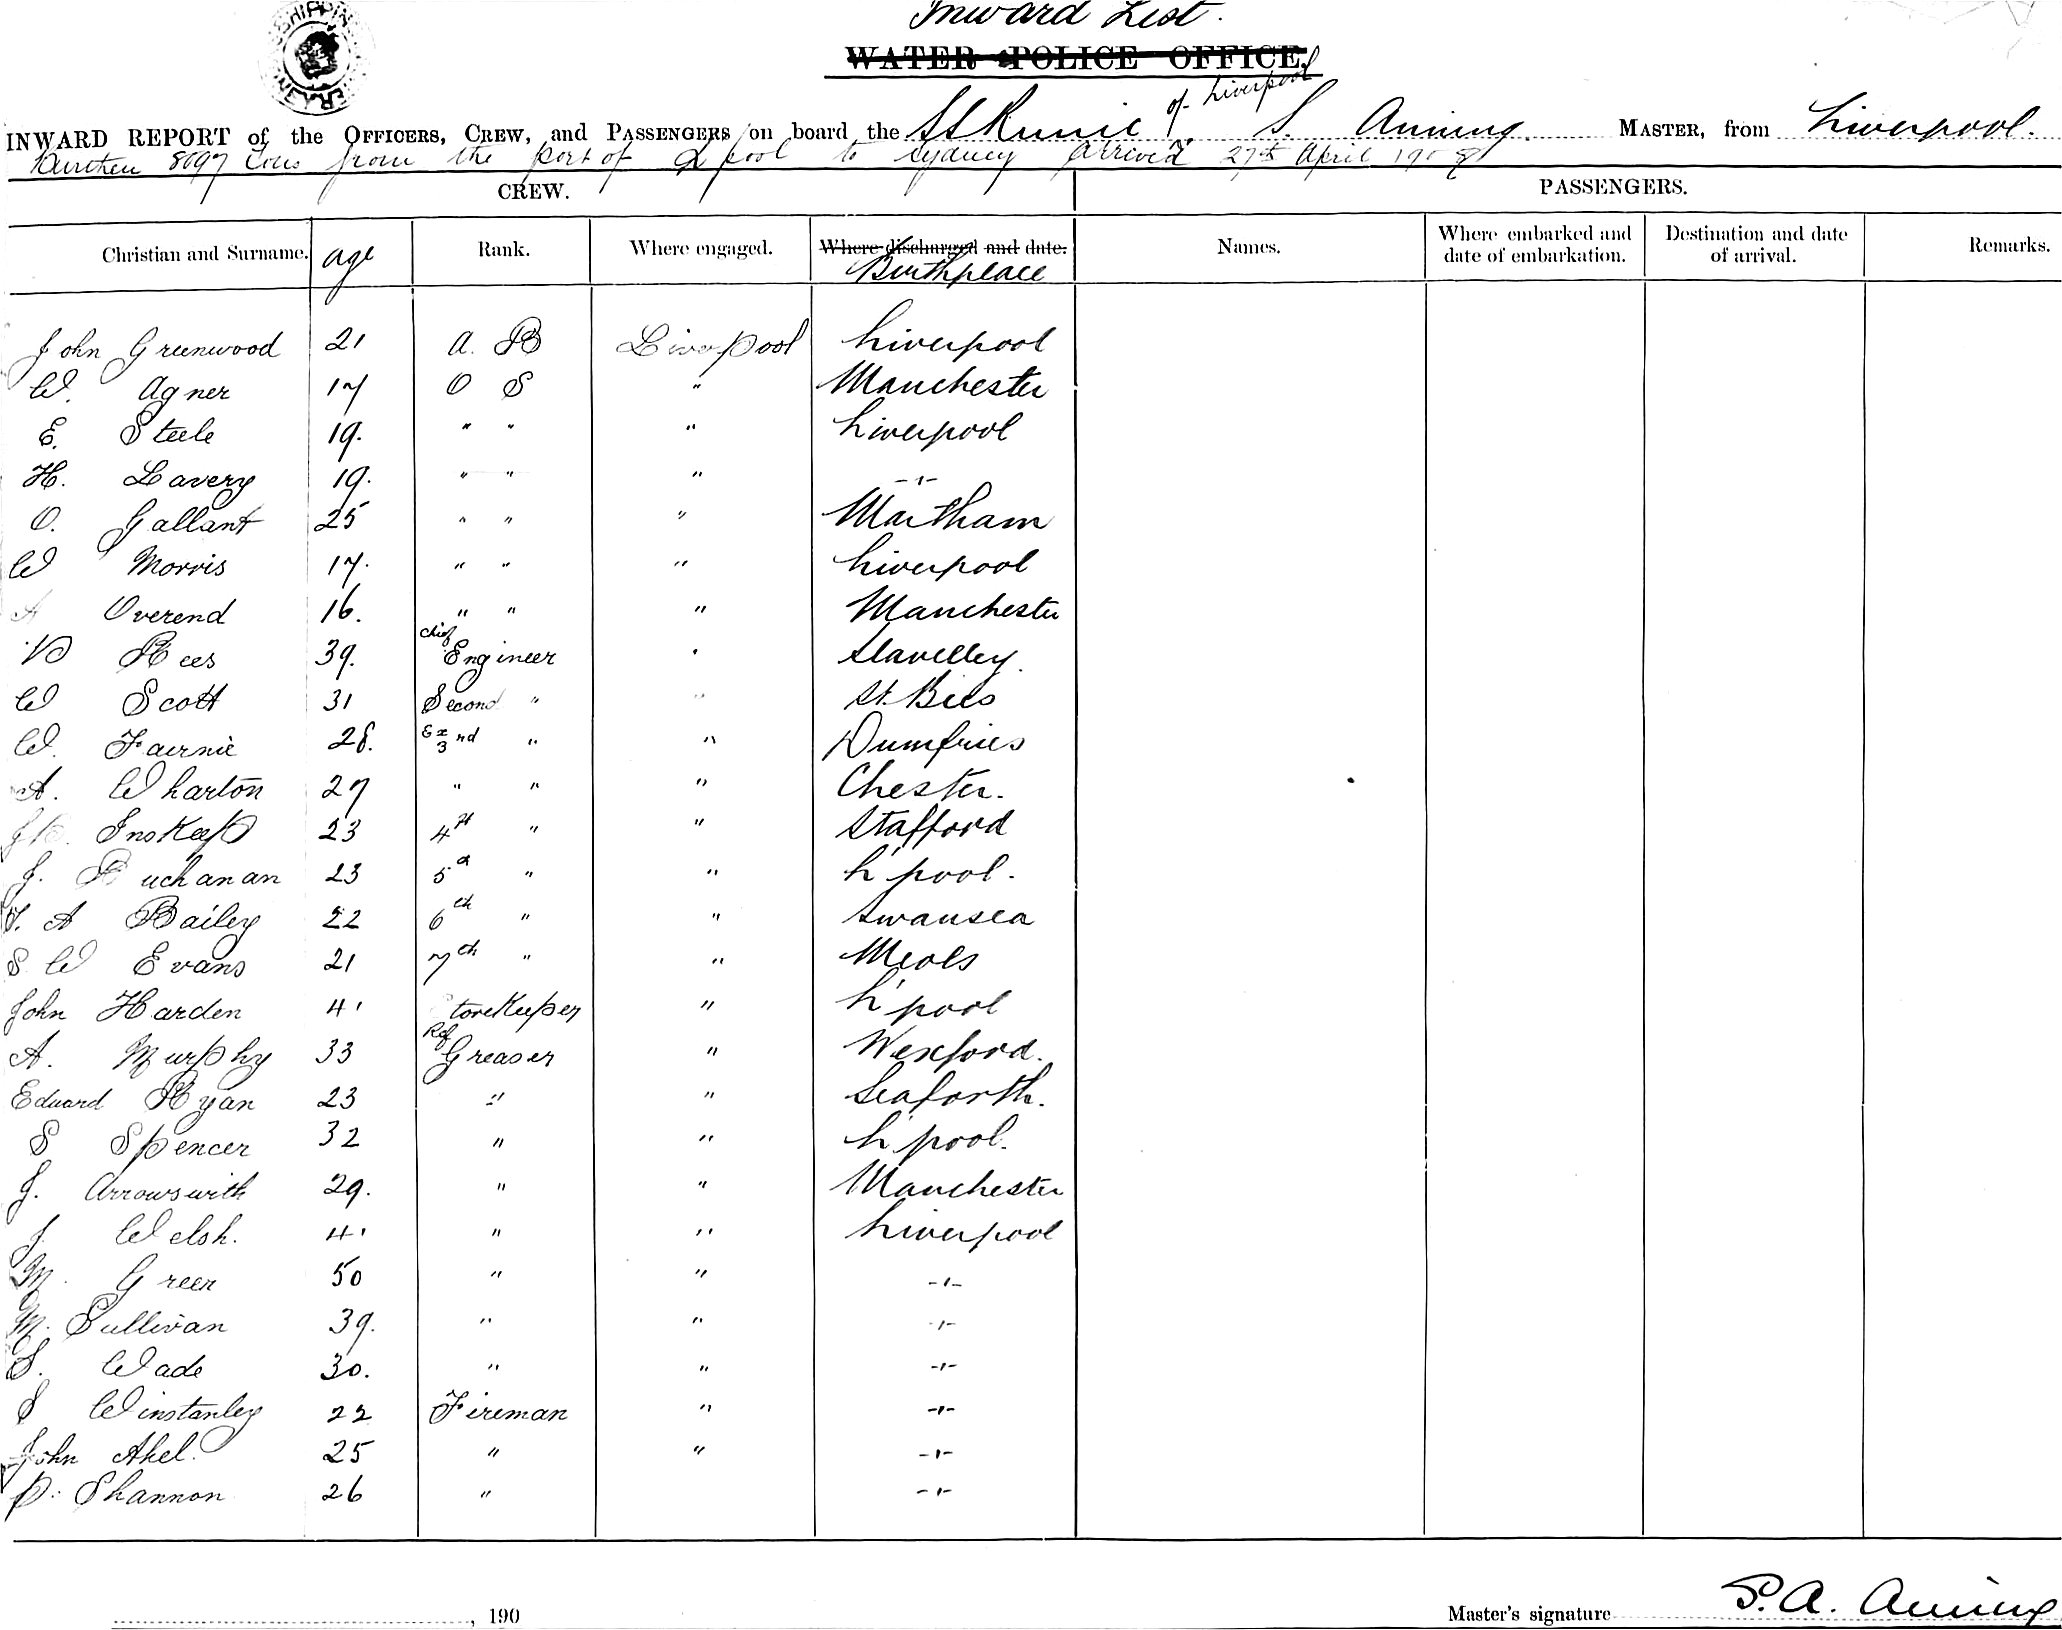 Inward List.
WATER POLICE OFFICE,
of Liverpool
INWARD REPORT of the OFFICERS, CREW, and PASSENGERS on board the SS Runic S. Aining MASTER, from Liverpool.
Burthen 8097 Tons from the port of L'pool to Sydney Arrived 27th April 1908
CREW. PASSENGERS.
Christian and Surname. age Rank. Where engaged. Where discharged and date. Names. Where embarked and Destination and date Remarks.
Birthplace date of embarkation. of arrival.
John Greenwood 21 A. B Liverpool Liverpool
W. Agner 17 O S " Manchester
E. Steele 19. " " " Liverpool
H. Lavery 19. " " " -"-
O. Gallant 25 " " " Martham
W Morris 17. " " " Liverpool
A Overend 16. " " " Manchester
Rees 39. Chief Engineer "
W Scott 31 Second " " St. Bees
W. Fairnie 28. Ex 3rd " " Dumfries
A. Wharton 27 " " " Chester.
Inskeep 23 4th " " Stafford
J. Buchanan 23 5th " " L'pool.
A Bailey 22 6th " " Swansea
S W Evans 21 7th " " Meols
John Harden 41 Storekeeper " L'pool
A. Murphy 33 Ref Greaser " Wexford.
Edward Ryan 23 " " Seaforth.
S Spencer 32 " " L'pool.
J. Arrowswith 29. " " Manchester
J. Welsh. 41 " " Liverpool
M. Green 50 " " -"-
M. Sullivan 39. " " -"-
S. Wade 30. " " -"-
S Winstanley 22 Fireman " -"-
John Ahel. 25 " " -"-
P. Shannon 26 " -"-
, 190 Master's signature S. A. Aining